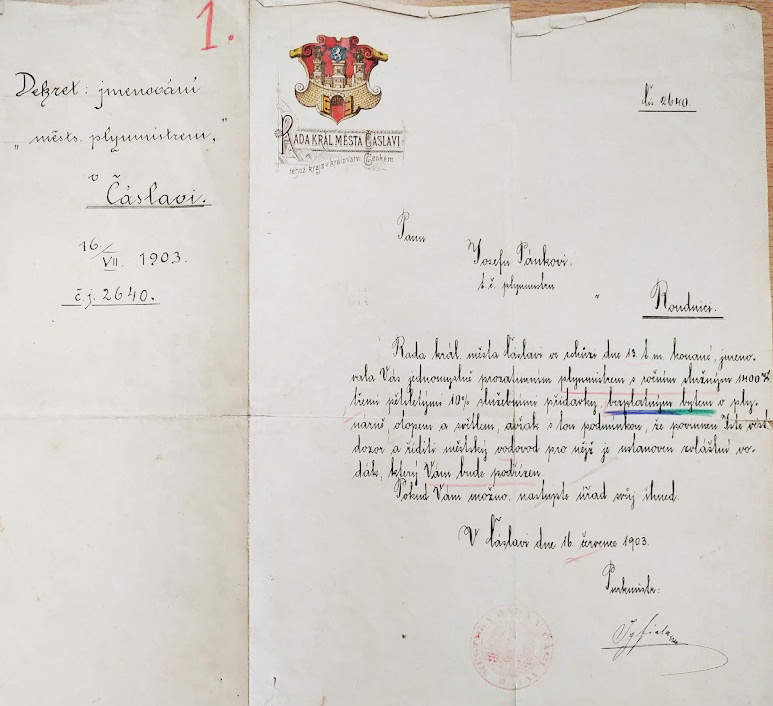 1.
Dekret: jmenování
„městs. plynmistrem,"
v
Čáslavi.
16./VII. 1903.
č.j. 2640.
RADA KRÁL. MĚSTA ČÁSLAVI
téhož kraje v království Českém.
Čís. 2640.
Panu
Josefu Pánkovi.
t. č. plynmistru
v
Roudnici.
Rada král. města Čáslavi ve schůzi dne 13. t. m. konané, jmeno-
vala Vás jednomyslně prozatimním plynmistrem s ročním služným 1400 K
třemi pětiletými 10% služebními přídavky, bezplatným bytem v ply-
nárně, otopem a světlem, avšak s tou podmínkou, že povinen jste vést
dozor a říditi městský vodovod pro nějž je ustanoven zvláštní vo-
dák, který Vám bude podřízen.
Pokud Vám možno, nastupte úřad svůj ihned.
V Čáslavi dne 16. července 1903.
Purkmistr: